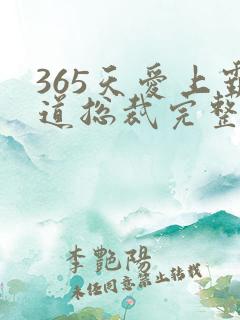 365天爱上霸
道总裁完整
李艷陽
未经同意禁止转载